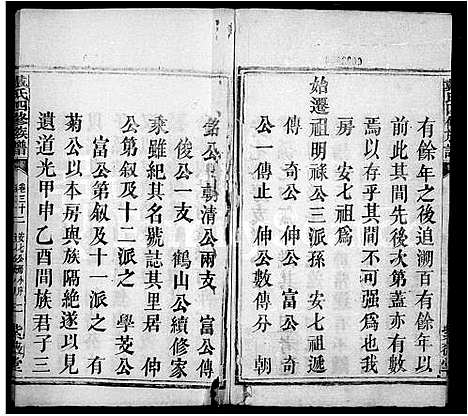 有餘年之後追溯百有餘年以
前此其間先後次第蓋亦有數
焉以存乎其間不可強爲也我
房 安七祖爲
始遷祖明祿公三派孫 安七祖遞
傳 奇公 伸公數傳分 朝
公一傳止
銘公 朝清公兩支 富公傳
俊公一支 鶴山公續修家
乘雖紀其名號誌其里居 伸
公第叙及十二派之 學茭公
富公第叙及十一派 有
菊公以本房與族隔絶遂以
遺道光甲申乙酉間族君子三
戴氏四修族譜
卷三十二
紫薇堂